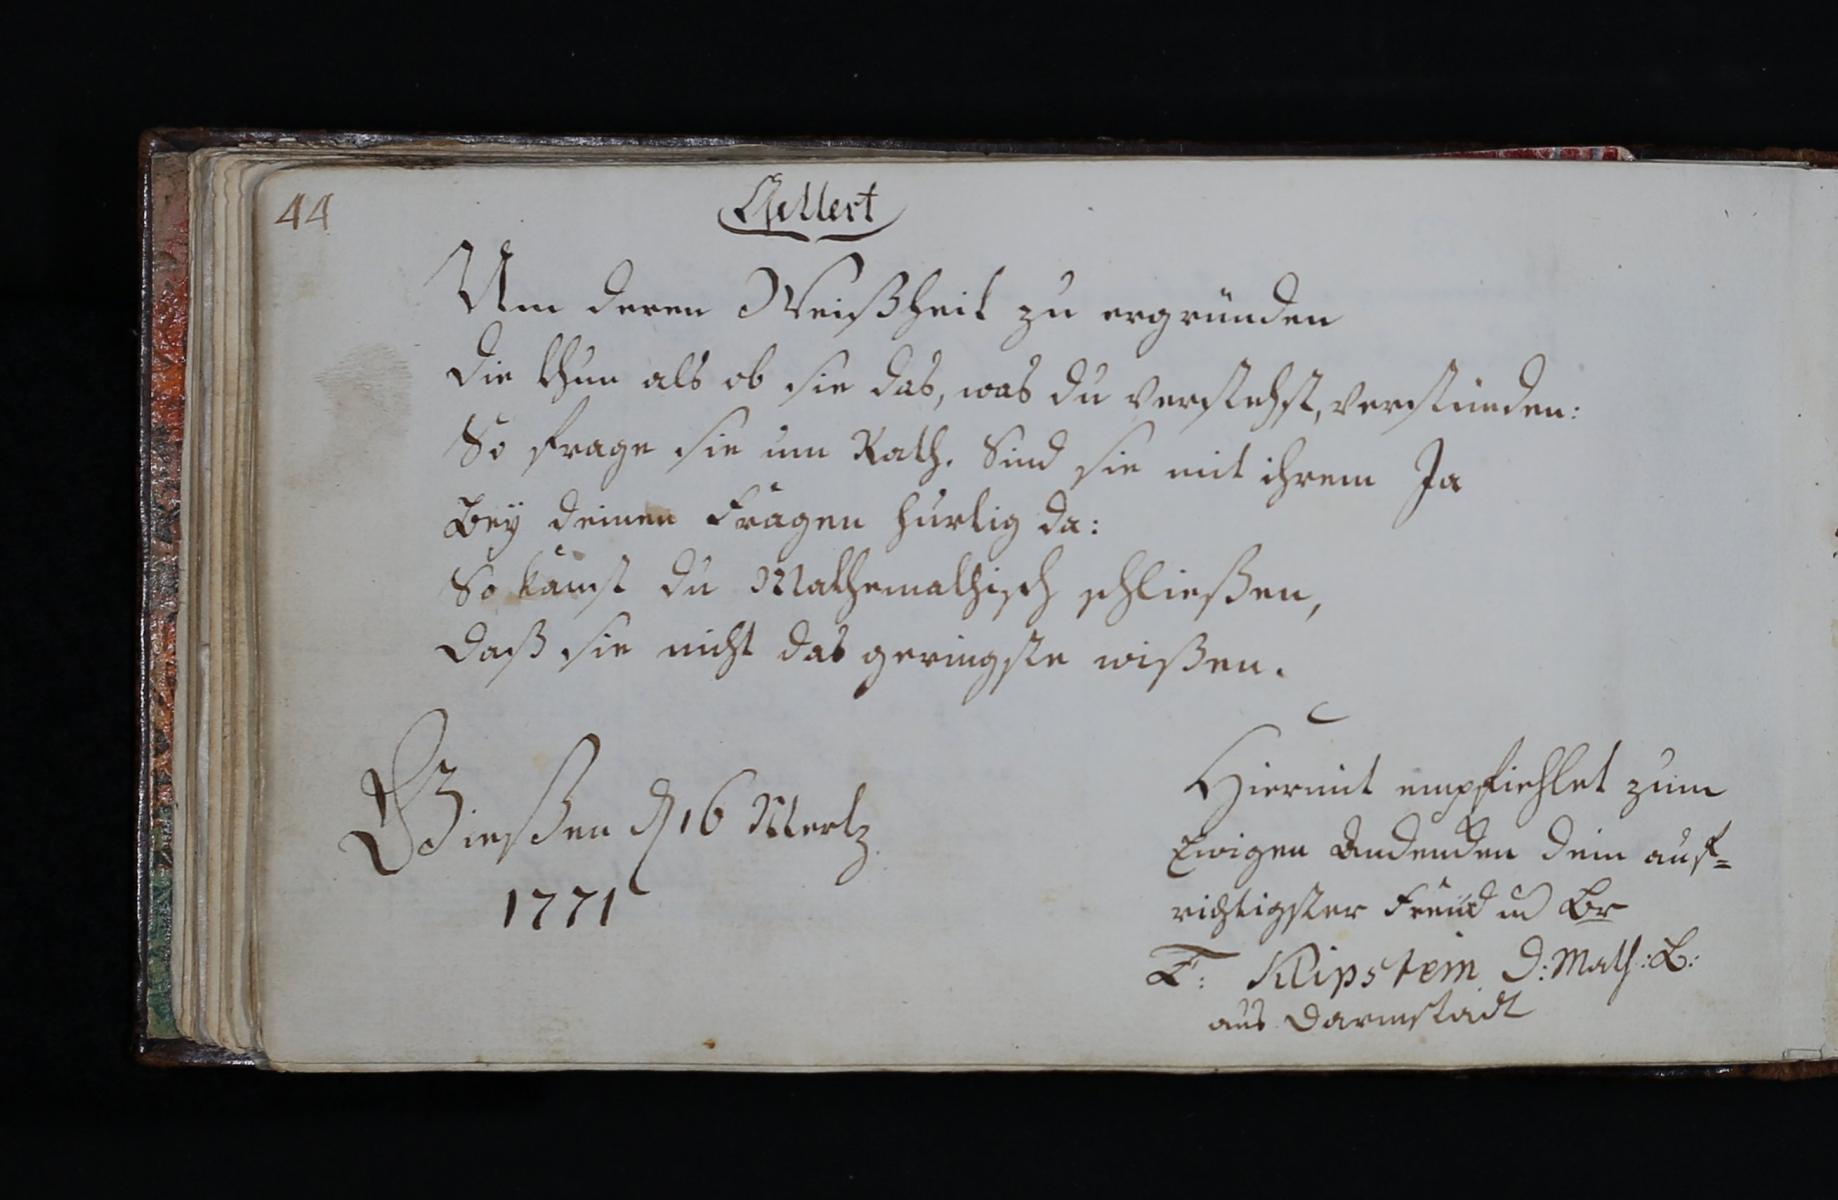 44
Gellert
Um deren Weißheit zu ergründen
Die thun als ob sie das, was du verstehst, verstünden:
So frage sie um Rath. Sind sie mit ihrem Ja
Bey deinen Fragen hurtig da:
So kanst du Mathemathisch schließen,
Daß sie nicht das geringste wißen.
Gießen d 16 Mertz
1771
Hiermit empfiehlet zum
Ewigen Andenken dein auf=
richtigster Freund und Br
Klipstein D: Math: B:
aus Darmstadt